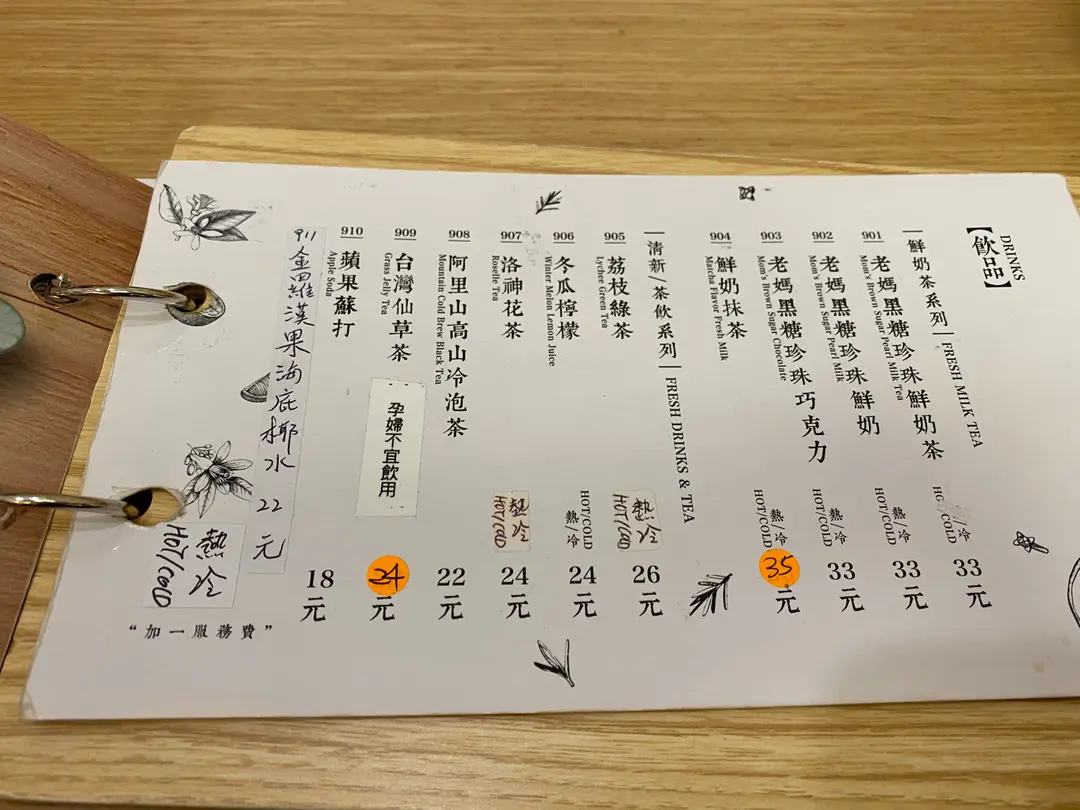 【飲品】
DRINKS
鮮奶茶系列 | FRESH MILK TEA
901 老媽黑糖珍珠鮮奶茶 熱/冷 33元
Mom's Brown Sugar Pearl Milk Tea
902 老媽黑糖珍珠鮮奶 熱/冷 HOT/COLD 33元
Mom's Brown Sugar Pearl Milk
903 老媽黑糖珍珠巧克力 熱/冷 HOT/COLD 33元
Mom's Brown Sugar Chocolate
904 鮮奶抹茶 熱/冷 HOT/COLD 35元
Matcha Flavor Fresh Milk
清新/茶飲系列 | FRESH DRINKS & TEA
905 荔枝綠茶 熱/冷 HOT/COLD 26元
Lychee Green Tea
906 冬瓜檸檬 熱/冷 HOT/COLD 24元
Winter Melon Lemon Juice
907 洛神花茶 熱/冷 HOT/COLD 24元
Roselle Tea
908 阿里山高山冷泡茶 22元
Mounain Cold Brew Black Tea
909 台灣仙草茶 孕婦不宜飲用 24元
Grass Jelly Tea
910 蘋果蘇打 18元
Apple Soda
911 金羅漢果海底椰水 22元
熱/冷 HOT/COLD
“加一服務費”